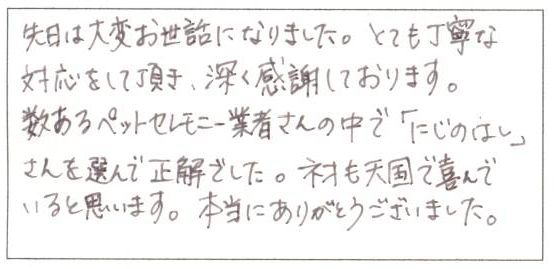 先日は大変お世話になりました。とても丁寧な
対応をして頂き、深く感謝しております。
数あるペットセレモニー業者さんの中で「にじのはし」
さんを選んで正解でした。ネオも天国で喜んで
いると思います。本当にありがとうございました。